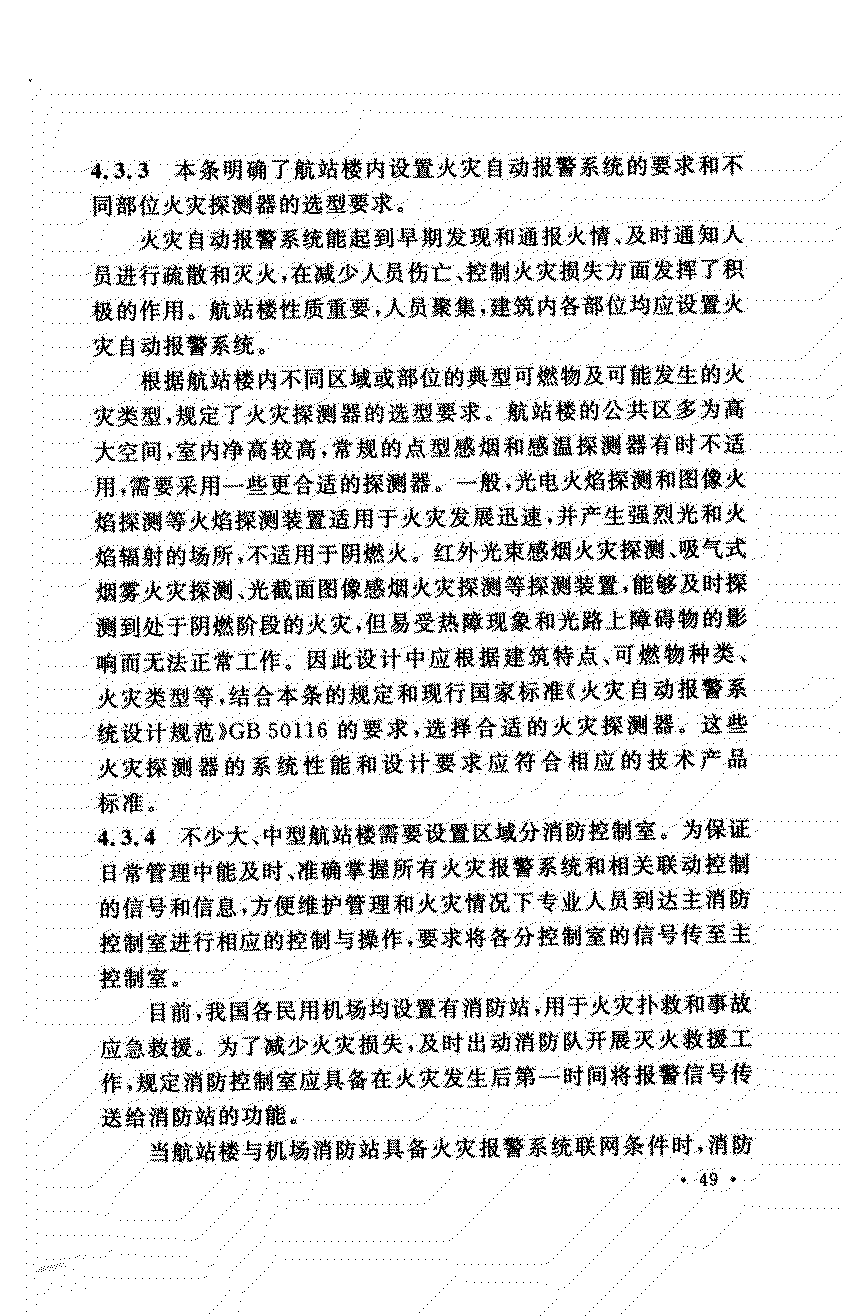 4.3.3 本条明确了航站楼内设置火灾自动报警系统的要求和不
同部位火灾探测器的选型要求。
火灾自动报警系统能起到早期发现和通报火情、及时通知人
员进行疏散和灭火,在减少人员伤亡、控制火灾损失方面发挥了积
极的作用。航站楼性质重要,人员聚集,建筑内各部位均应设置火
灾自动报警系统。
根据航站楼内不同区域或部位的典型可燃物及可能发生的火
灾类型,规定了火灾探测器的选型要求。航站楼的公共区多为高
大空间,室内净高较高,常规的点型感烟和感温探测器有时不适
用,需要采用一些更合适的探测器。一般,光电火焰探测和图像火
焰探测等火焰探测装置适用于火灾发展迅速,并产生强烈光和火
焰辐射的场所,不适用于阴燃火。红外光束感烟火灾探测、吸气式
烟雾火灾探测、光截面图像感烟火灾探测等探测装置,能够及时探
测到处于阴燃阶段的火灾,但易受热障现象和光路上障碍物的影
响而无法正常工作。因此设计中应根据建筑特点、可燃物种类、
火灾类型等,结合本条的规定和现行国家标准《火灾自动报警系
统设计规范》GB 50116 的要求,选择合适的火灾探测器。这些
火灾探测器的系统性能和设计要求应符合相应的技术产品
标准。
4.3.4 不少大、中型航站楼需要设置区域分消防控制室。为保证
日常管理中能及时、准确掌握所有火灾报警系统和相关联动控制
的信号和信息,方便维护管理和火灾情况下专业人员到达主消防
控制室进行相应的控制与操作,要求将各分控制室的信号传至主
控制室。
目前,我国各民用机场均设置有消防站,用于火灾扑救和事故
应急救援。为了减少火灾损失,及时出动消防队开展灭火救援工
作,规定消防控制室应具备在火灾发生后第一时间将报警信号传
送给消防站的功能。
当航站楼与机场消防站具备火灾报警系统联网条件时,消防
· 49 ·